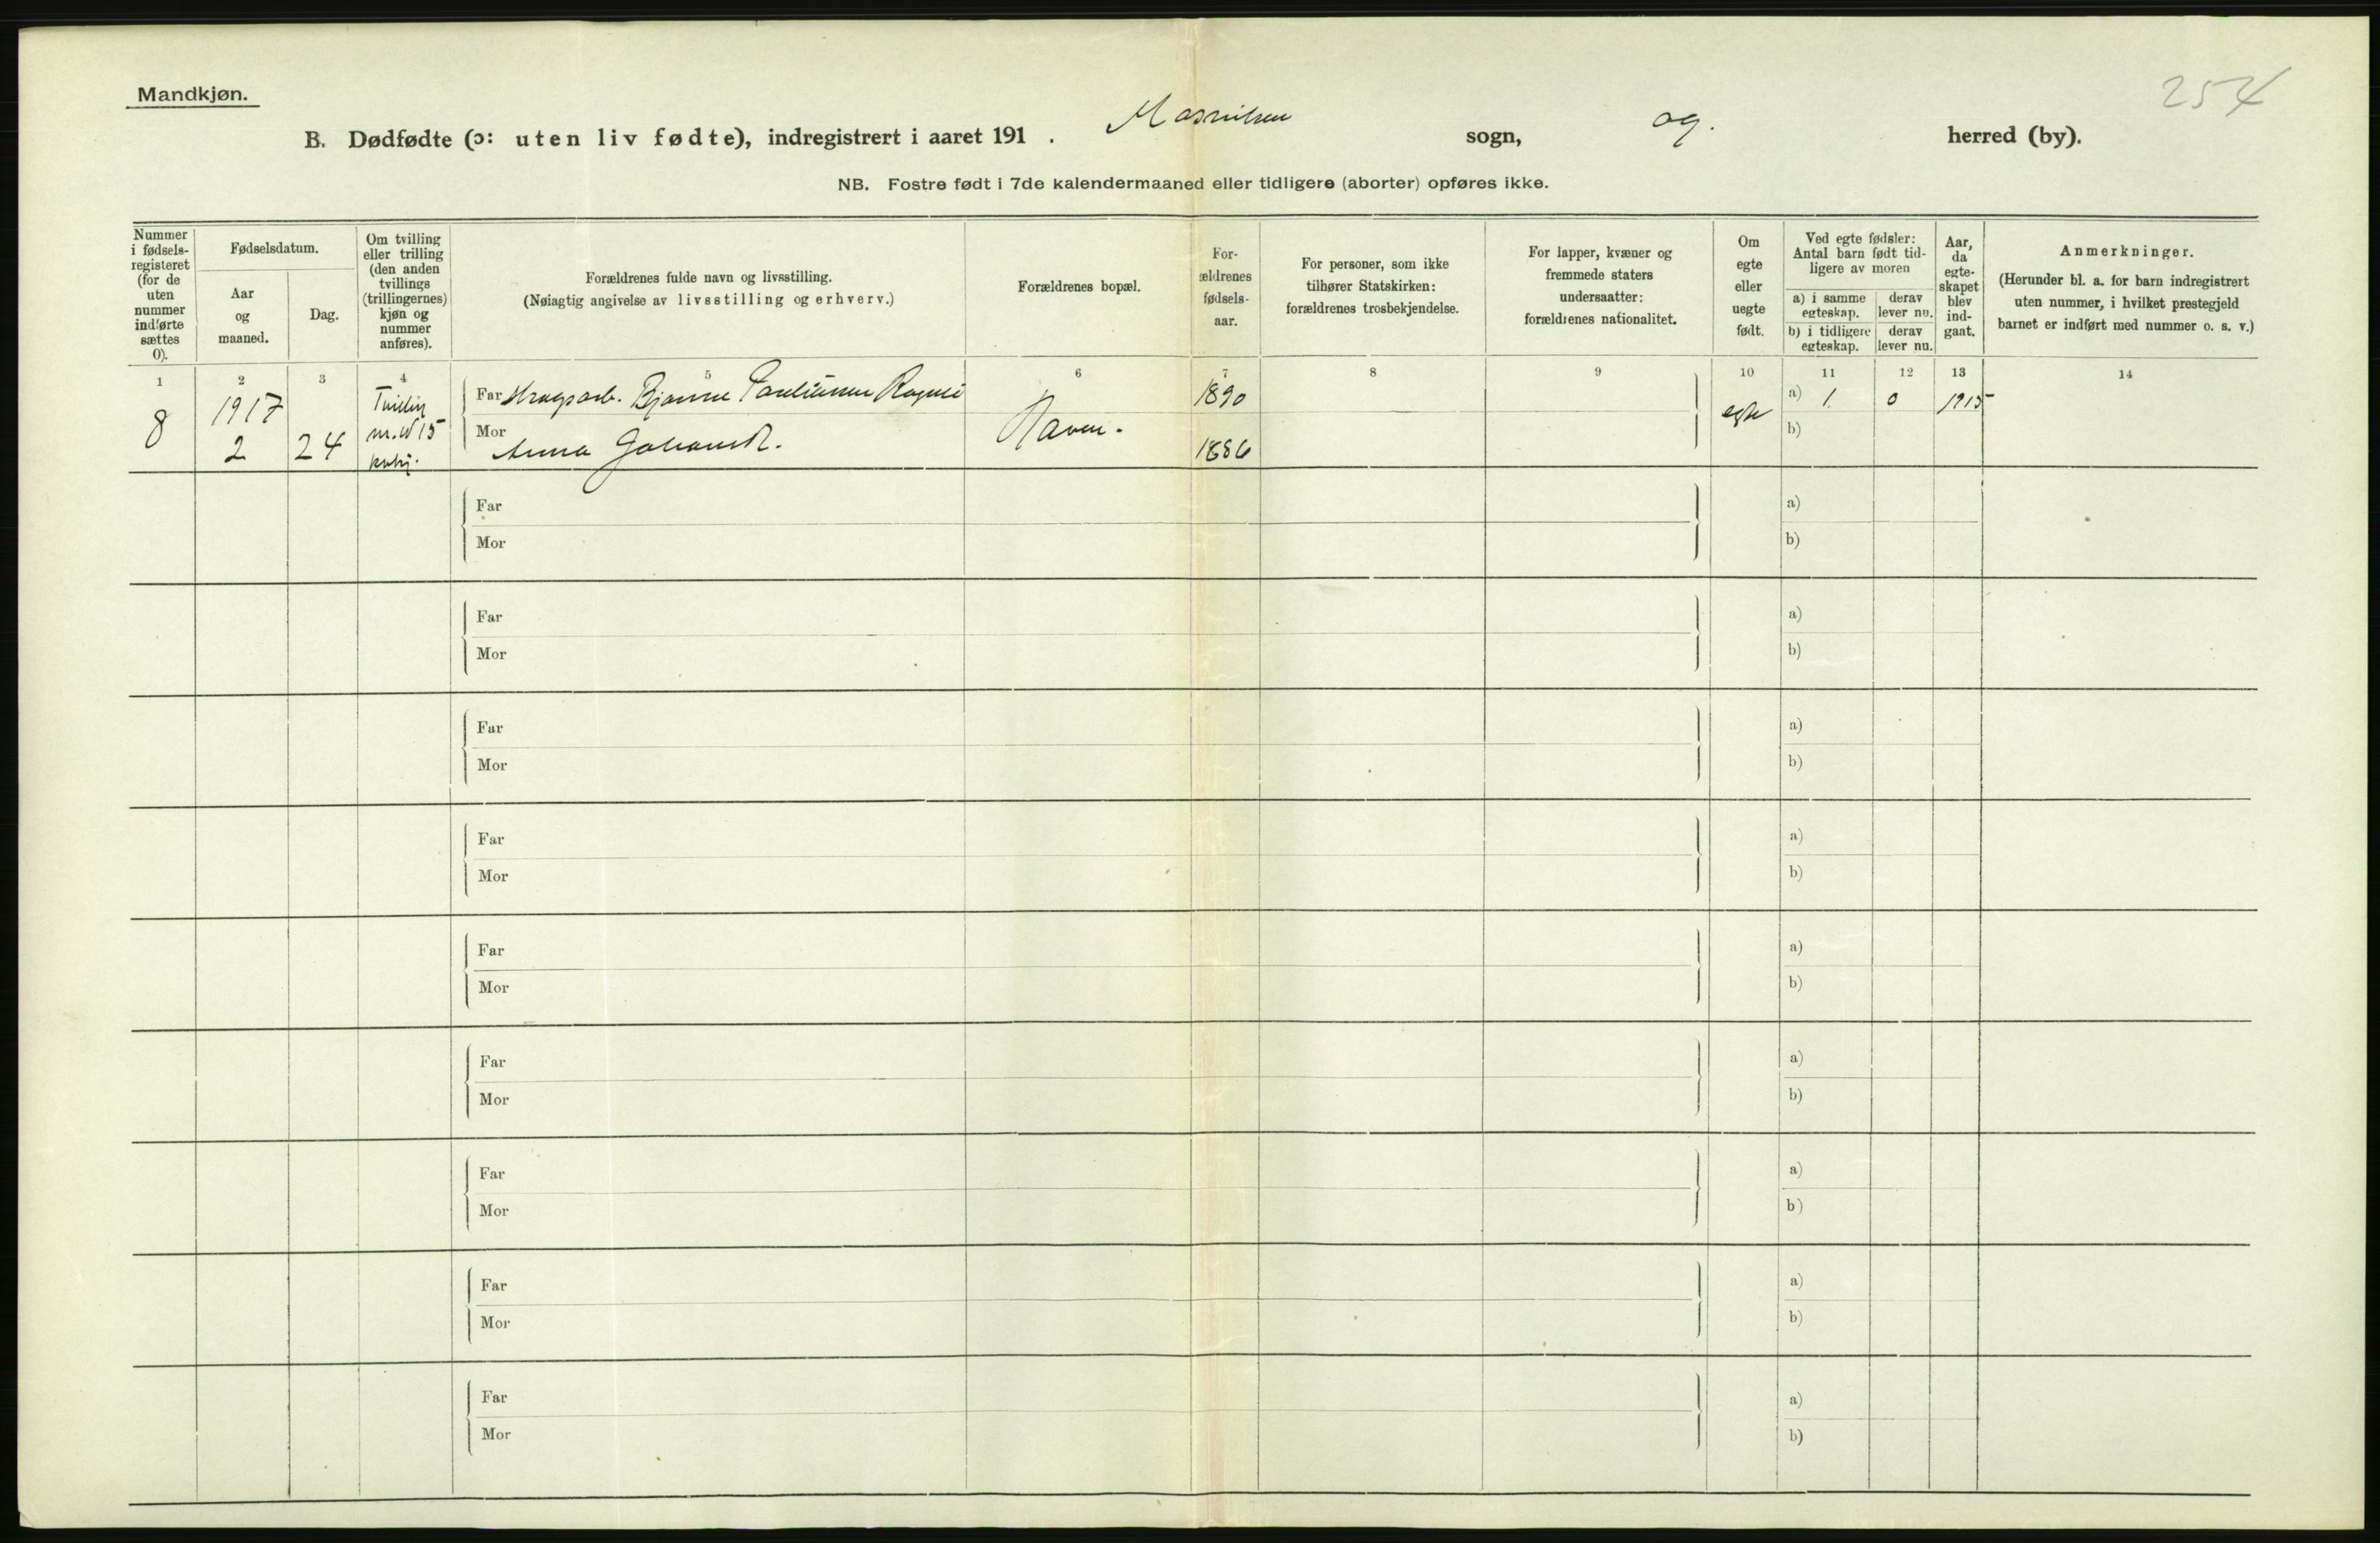 Mandkjøn.
254
B. Dødfødte (ɔ: uten liv fødte), indregistrert i aaret 191 . sogn, og. herred (by).
NB. Fostre født i 7de kalendermaaned eller tidligere (aborter) opføres ikke.
Nummer
i fødsels-
registeret
(for de
uten
nummer
indførte
sættes
0).
Fødselsdatum.
Aar
og
maaned.
Dag.
Om tvilling
eller trilling
(den anden
tvillings
(trillingernes)
kjøn og
nummer
anføres).
Forældrenes fulde navn og livsstilling.
(Nøiagtig angivelse av livsstilling og erhverv.)
Forældrenes bopæl.
For-
ældrenes
fødsels-
aar.
For personer, som ikke
tilhører Statskirken:
forældrenes trosbekjendelse.
For lapper, kvæner og
fremmede staters
undersaatter:
forældrenes nationalitet.
Om
egte
eller
uegte
født.
Ved egte fødsler:
Antal barn født tid-
ligere av moren
a) i samme
egteskap.
derav
lever nu.
b) i tidligere
egteskap.
derav
lever nu.
Aar,
da
egte-
skapet
blev
ind-
gaat.
Anmerkninger.
(Herunder bl. a. for barn indregistrert
uten nummer, i hvilket prestegjeld
barnet er indført med nummer o. s. v.)
1 2 3 4 5 6 7 8 9 10 11 12 13 14
8
1917
2
24
Tvilling
m. N 15
Far Bjarne
Mor
Anna
1890
1886
egte
a) 1 0 1915
b)
Far a)
Mor b)
Far a)
Mor b)
Far a)
Mor b)
Far a)
Mor b)
Far a)
Mor b)
Far a)
Mor b)
Far a)
Mor b)
Far a)
Mor b)
Far a)
Mor b)